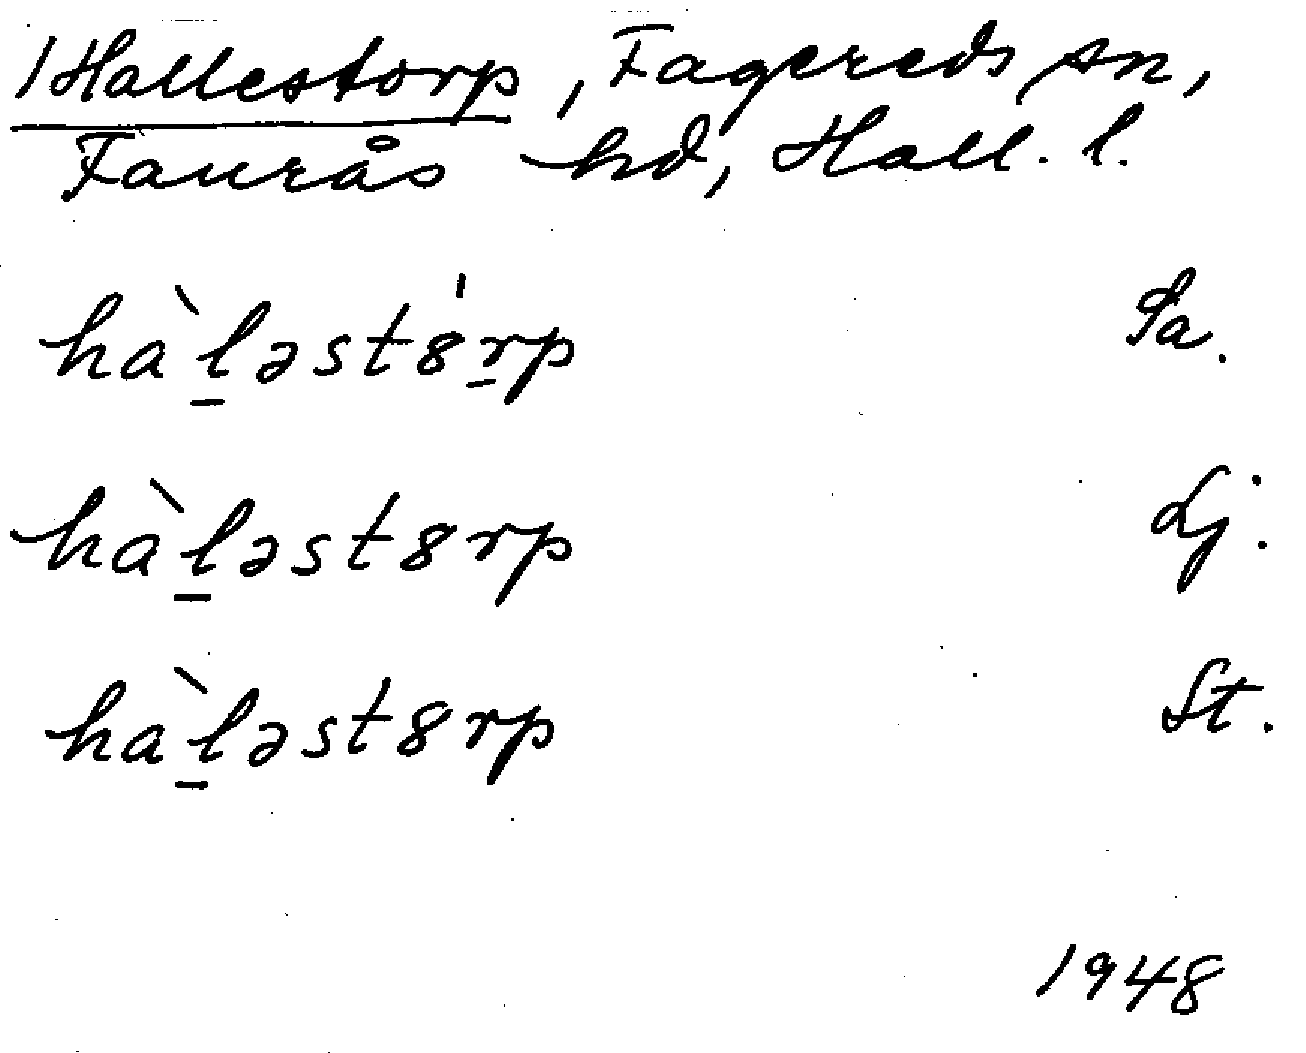 Hallestorp, Fagereds sn,
Faurås hd, Hall. l.
hàl̠əst8̍r̠p Sa.
hàl̠əst8rp Lj.
hàl̠əst8rp St.
1948